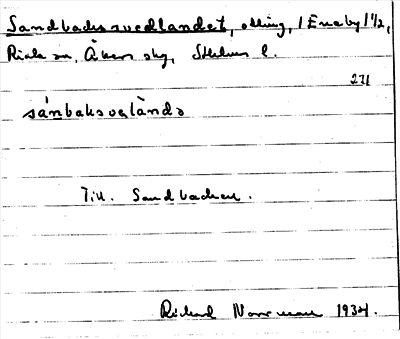 Sandbacksvedlandet, odling, / Eneby 1 1/2,
Riala sn, Åkers skg, Sthlms l.
271
sánbaksvelàndə
Till. Sandbacken.
Richard Norrman 1934.